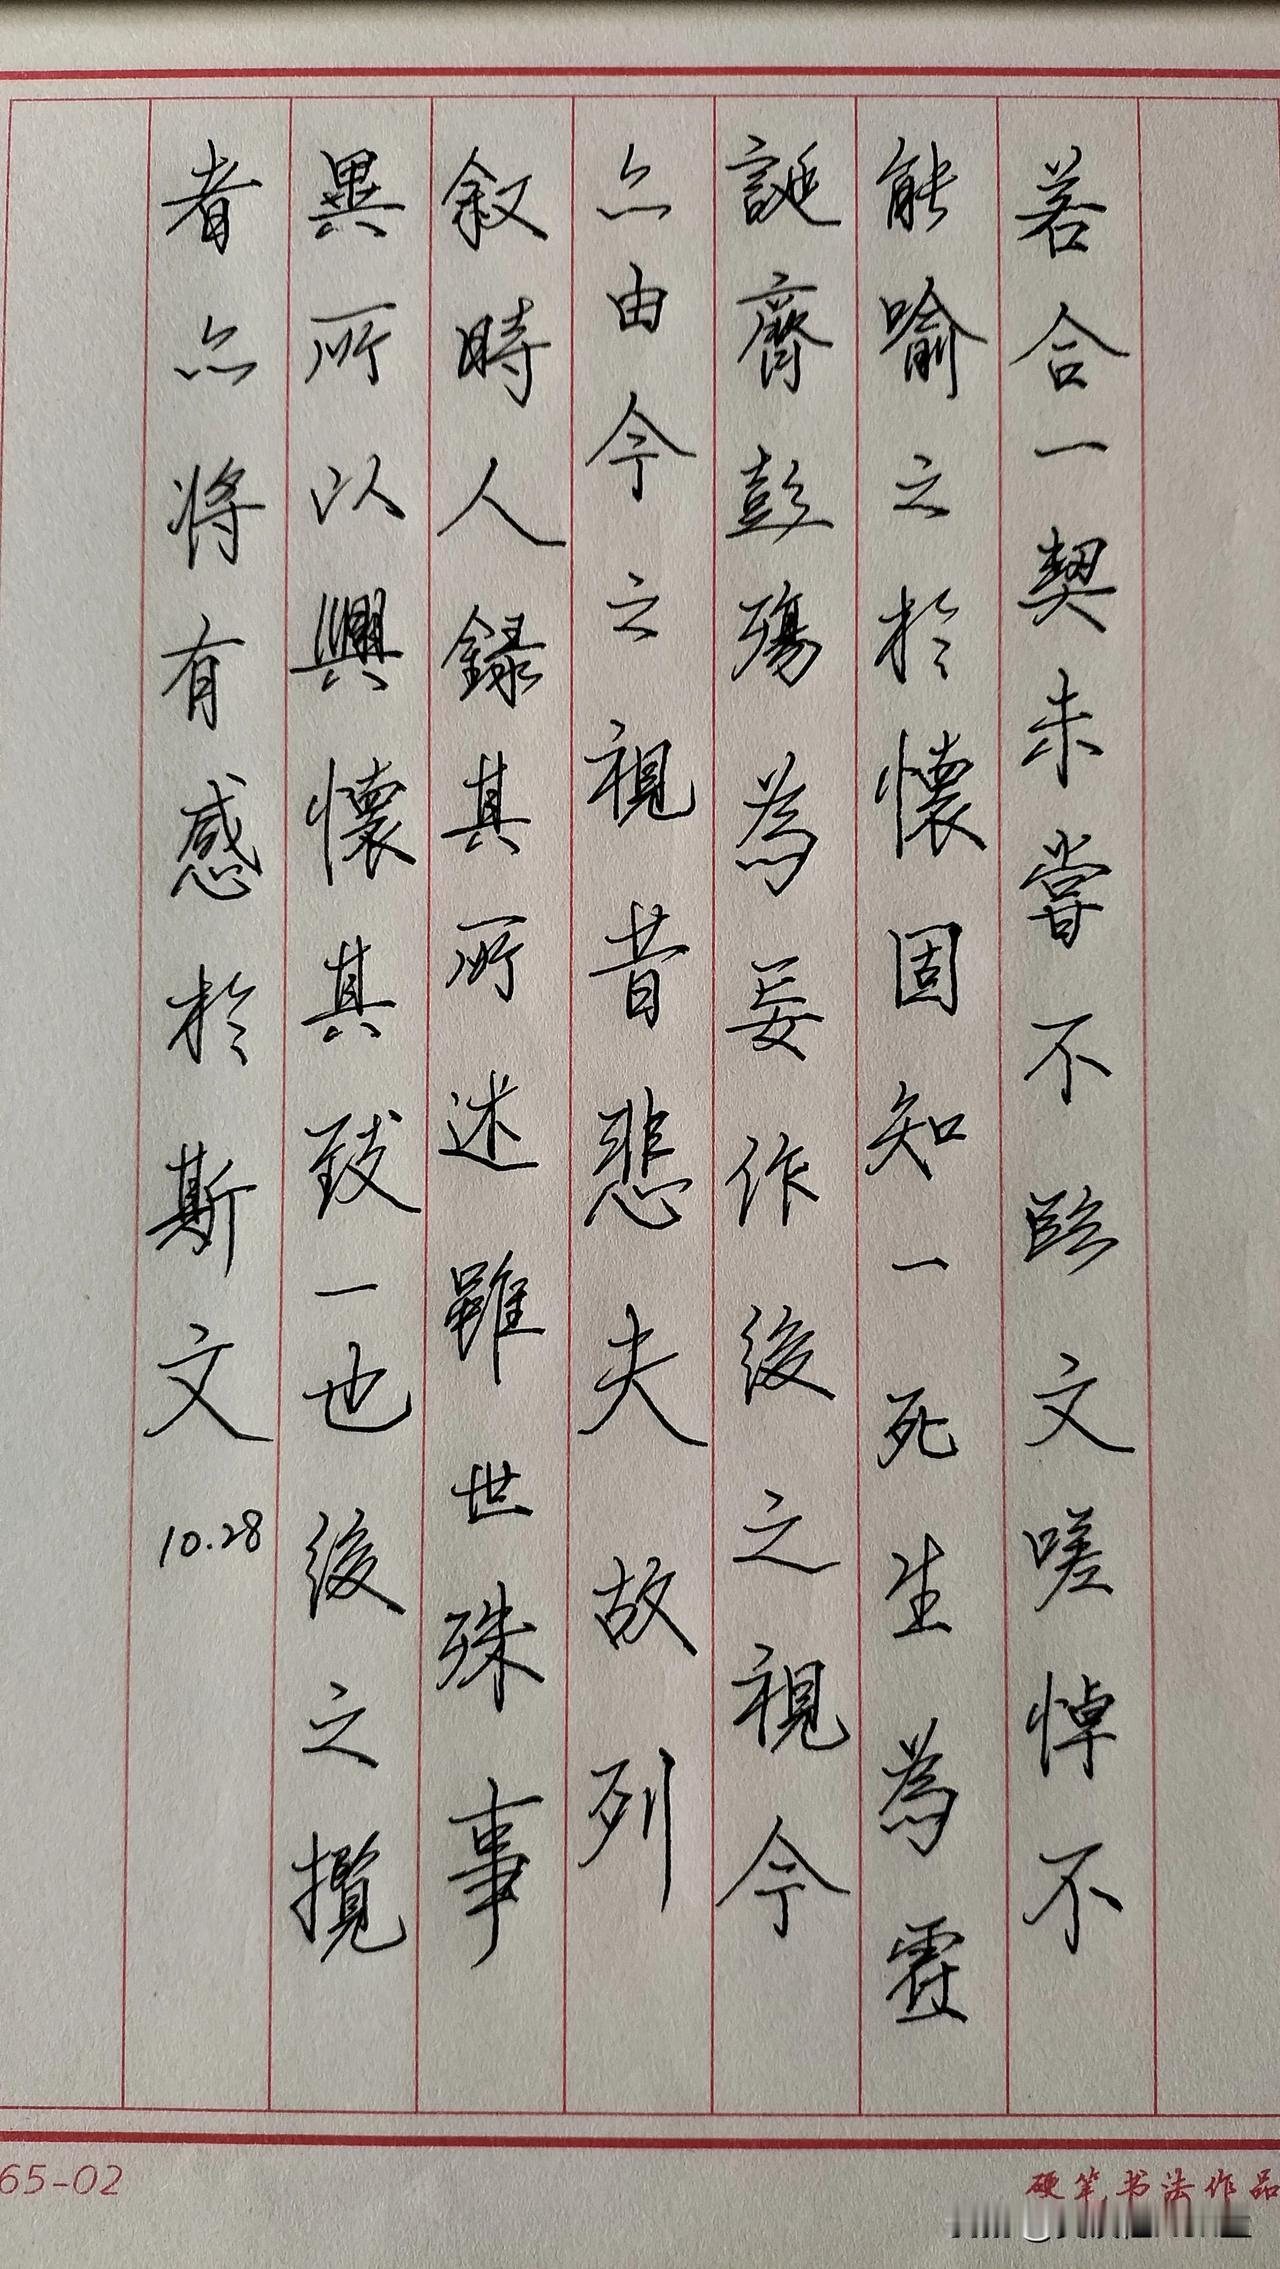 若合一契未嘗不臨文嗟悼不
能喻之於懷固知一死生為虛
誕齊彭殤為妄作後之視今
亦由今之視昔悲夫故列
敘時人録其所述雖世殊事
異所以興懷其致一也後之攬
者亦將有感於斯文
10.28
65-02
硬笔书法作品